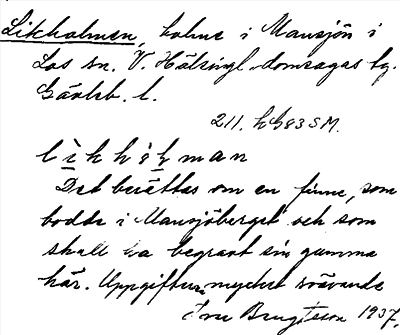 Likholmen, holme i Mansjön i
Los sn. V. Hälsingl. domsagas tg.
Gävleb. l.
211. hG83SM.
likhòlman
Det berättas om en finne, som
bodde i Mansjöberget och som
skall ha begravt sin gumma
här. Uppgiften mycket svävande
Bengtsson 1937.